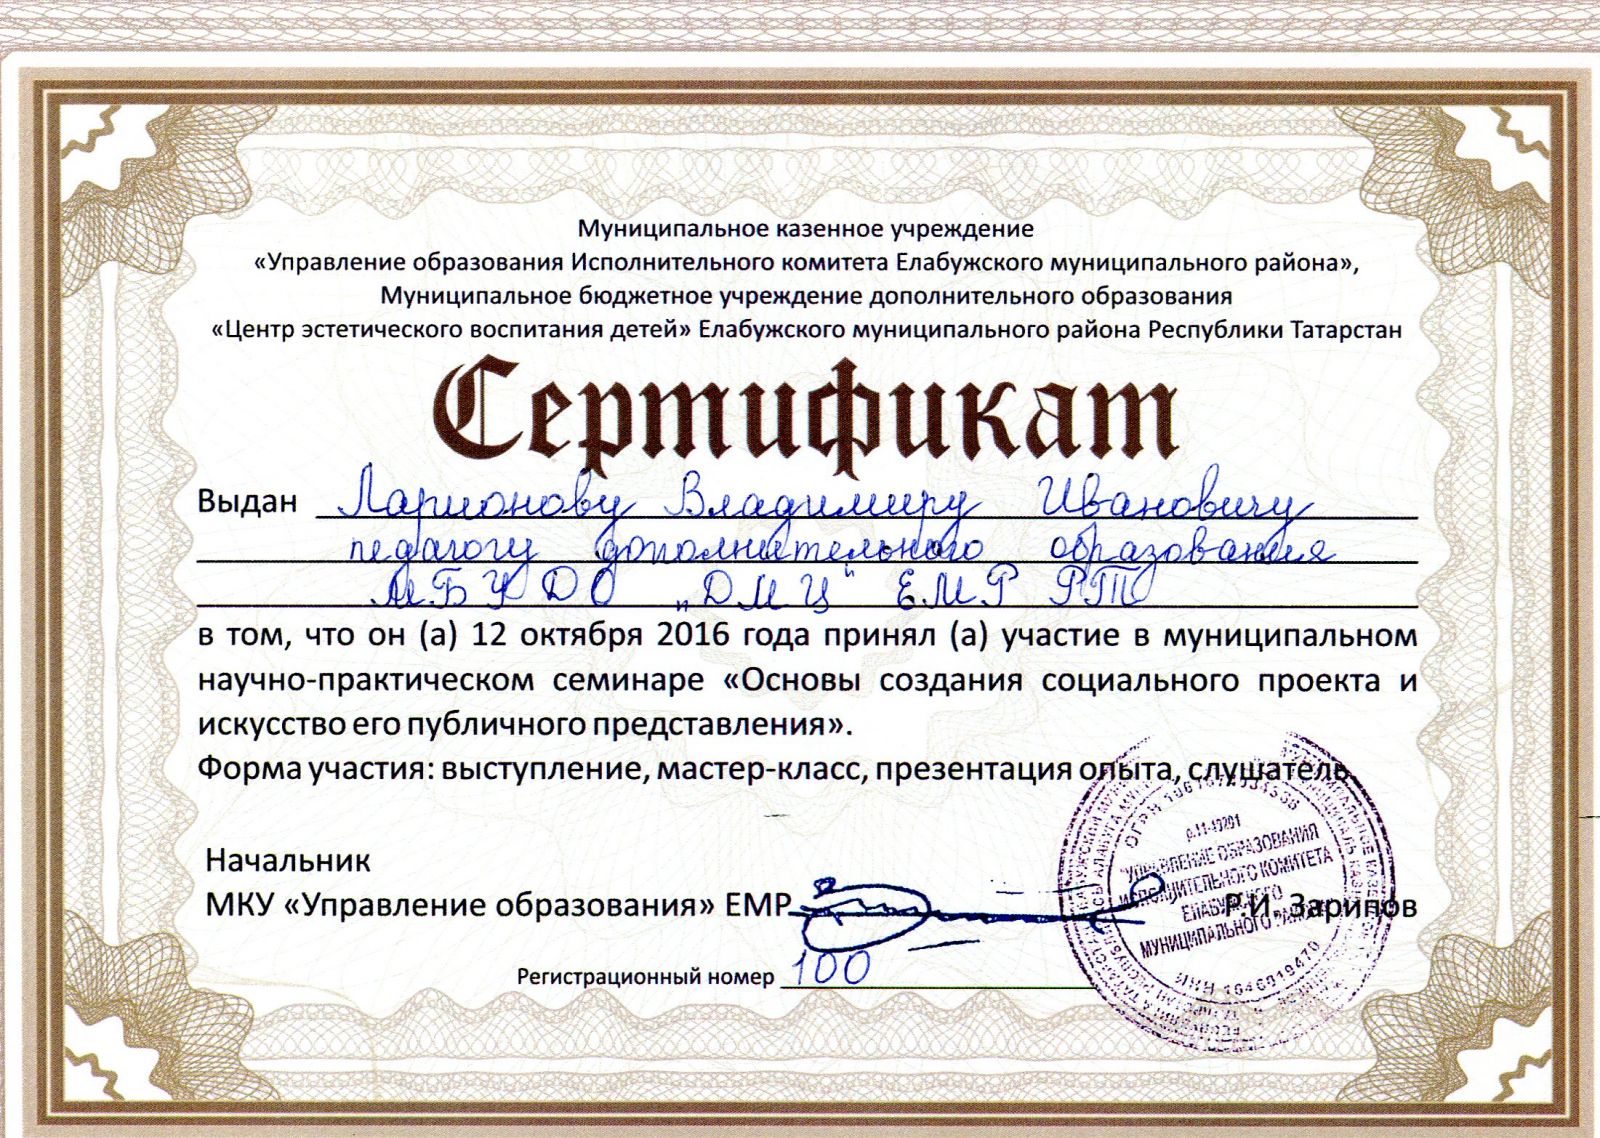 Муниципальное казенное учреждение
«Управление образования Исполнительного комитета Елабужского муниципального района»,
Муниципальное бюджетное учреждение дополнительного образования
«Центр эстетического воспитания детей» Елабужского муниципального района Республики Татарстан
Сертификат
Выдан Ларионову Владимиру Ивановичу
педагогу дополнительного образования
МБУ ДО "ДМЦ" ЕМР РТ
в том, что он (а) 12 октября 2016 года принял (а) участие в муниципальном
научно-практическом семинаре «Основы создания социального проекта и
искусство его публичного представления».
Форма участия: выступление, мастер-класс, презентация опыта, слушатель.
Начальник
МКУ «Управление образования» ЕМР Р.И. Зарипов
Регистрационный номер 100
УПРАВЛЕНИЕ ОБРАЗОВАНИЯ
ИСПОЛНИТЕЛЬНОГО КОМИТЕТА
ЕЛАБУЖСКОГО
МУНИЦИПАЛЬНОГО РАЙОНА